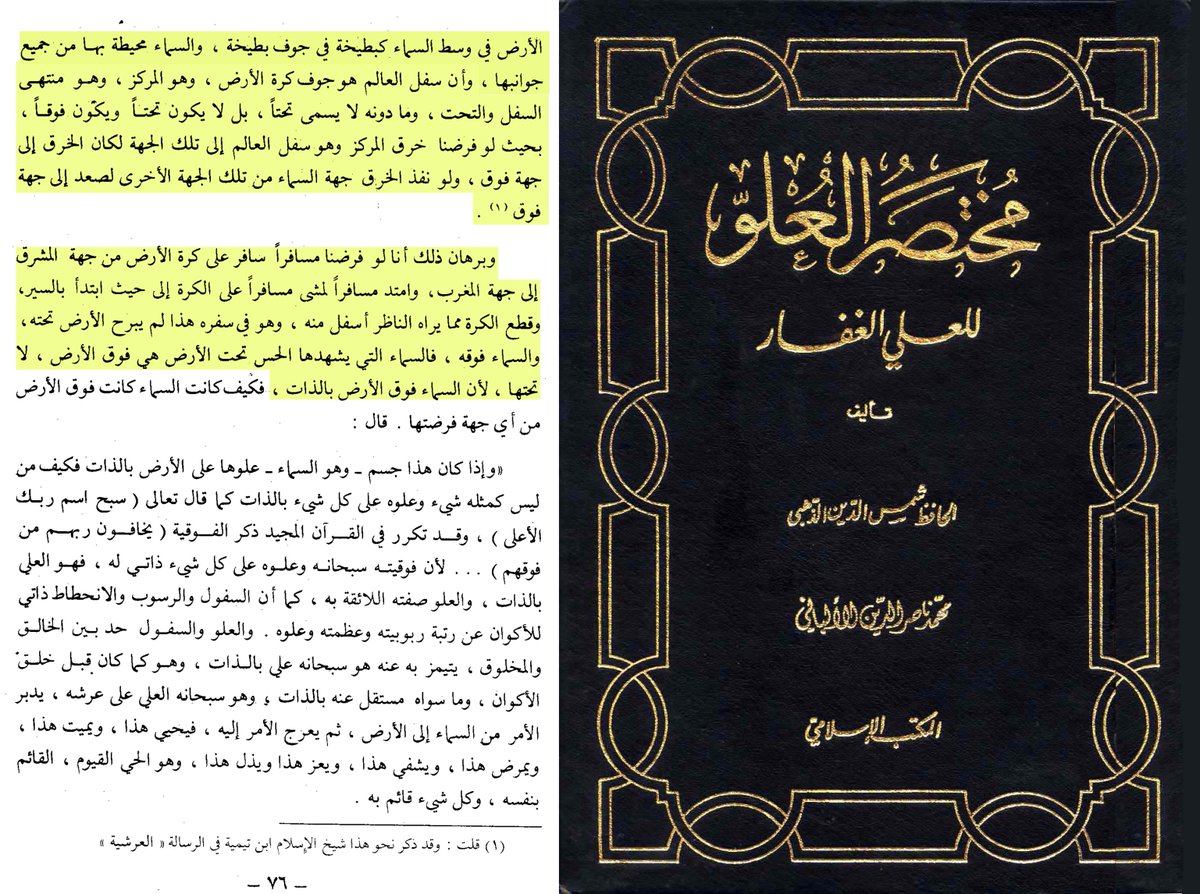 الأرض في وسط السماء كبطيخة في جوف بطيخة ، والسماء محيطة بها من جميع
جوانبها ، وأن سفل العالم هو جوف كرة الأرض ، وهو المركز ، وهو منتهى
السفل والتحت ، وما دونه لا يسمى تحتاً ، بل لا يكون تحتاً ويكون فوقاً ،
بحيث لو فرضنا خرق المركز وهو سفل العالم إلى تلك الجهة لكان الخرق إلى
جهة فوق ، ولو نفذ الخرق جهة السماء من تلك الجهة الأخرى لصعد إلى جهة
فوق (١) .
وبرهان ذلك أنا لو فرضنا مسافراً سافر على كرة الأرض من جهة المشرق
إلى جهة المغرب، وامتد مسافراً لمشى مسافراً على الكرة إلى حيث ابتدأ بالسير،
وقطع الكرة مما يراه الناظر أسفل منه ، وهو في سفره هذا لم يبرح الأرض تحته،
والسماء فوقه ، فالسماء التي يشهدها الحس تحت الأرض هي فوق الأرض ، لا
تحتها ، لأن السماء فوق الأرض بالذات ، فكيف كانت السماء كانت فوق الأرض
من أي جهة فرضتها . قال :
«وإذا كان هذا جسم ـ وهو السماء ـ علوها على الأرض بالذات فكيف من
ليس كمثله شيء وعلوه على كل شيء بالذات كما قال تعالى ( سبح اسم ربك
الأعلى ) ، وقد تكرر في القرآن المجيد ذكر الفوقية ( يخافون ربهم من
فوقهم ) . . . لأن فوقيته سبحانه وعلوه على كل شيء ذاتي له ، فهو العلي
بالذات ، والعلو صفته اللائقة به ، كما أن السفول والرسوب والانحطاط ذاتي
للأكوان عن رتبة ربوبيته وعظمته وعلوه . والعلو والسفول حد بين الخالق
والمخلوق ، يتيمز به عنه هو سبحانه علي بالذات ، وهو كما كان قبل خلق
الأكوان ، وما سواه مستقل عنه بالذات ، وهو سبحانه العلي على عرشه ، يدبر
الأمر من السماء إلى الأرض ، ثم يعرج الأمر إليه ، فيحيي هذا ، ويميت هذا ،
ويمرض هذا ، ويشفي هذا ، ويعز هذا ويذل هذا ، وهو الحي القيوم ، القائم
بنفسه ، وكل شيء قائم به .
(١) قلت : وقد ذكر نحو هذا شيخ الإسلام ابن تيمية في الرسالة « العرشية »
ـ ٧٦ ـ
مُختصَرُ العُلوّ
للعلي الغفار
تأليف
الحافظ شمس الدين الذهبي
محمد ناصر الدين الألباني
المكتب الإسلامي